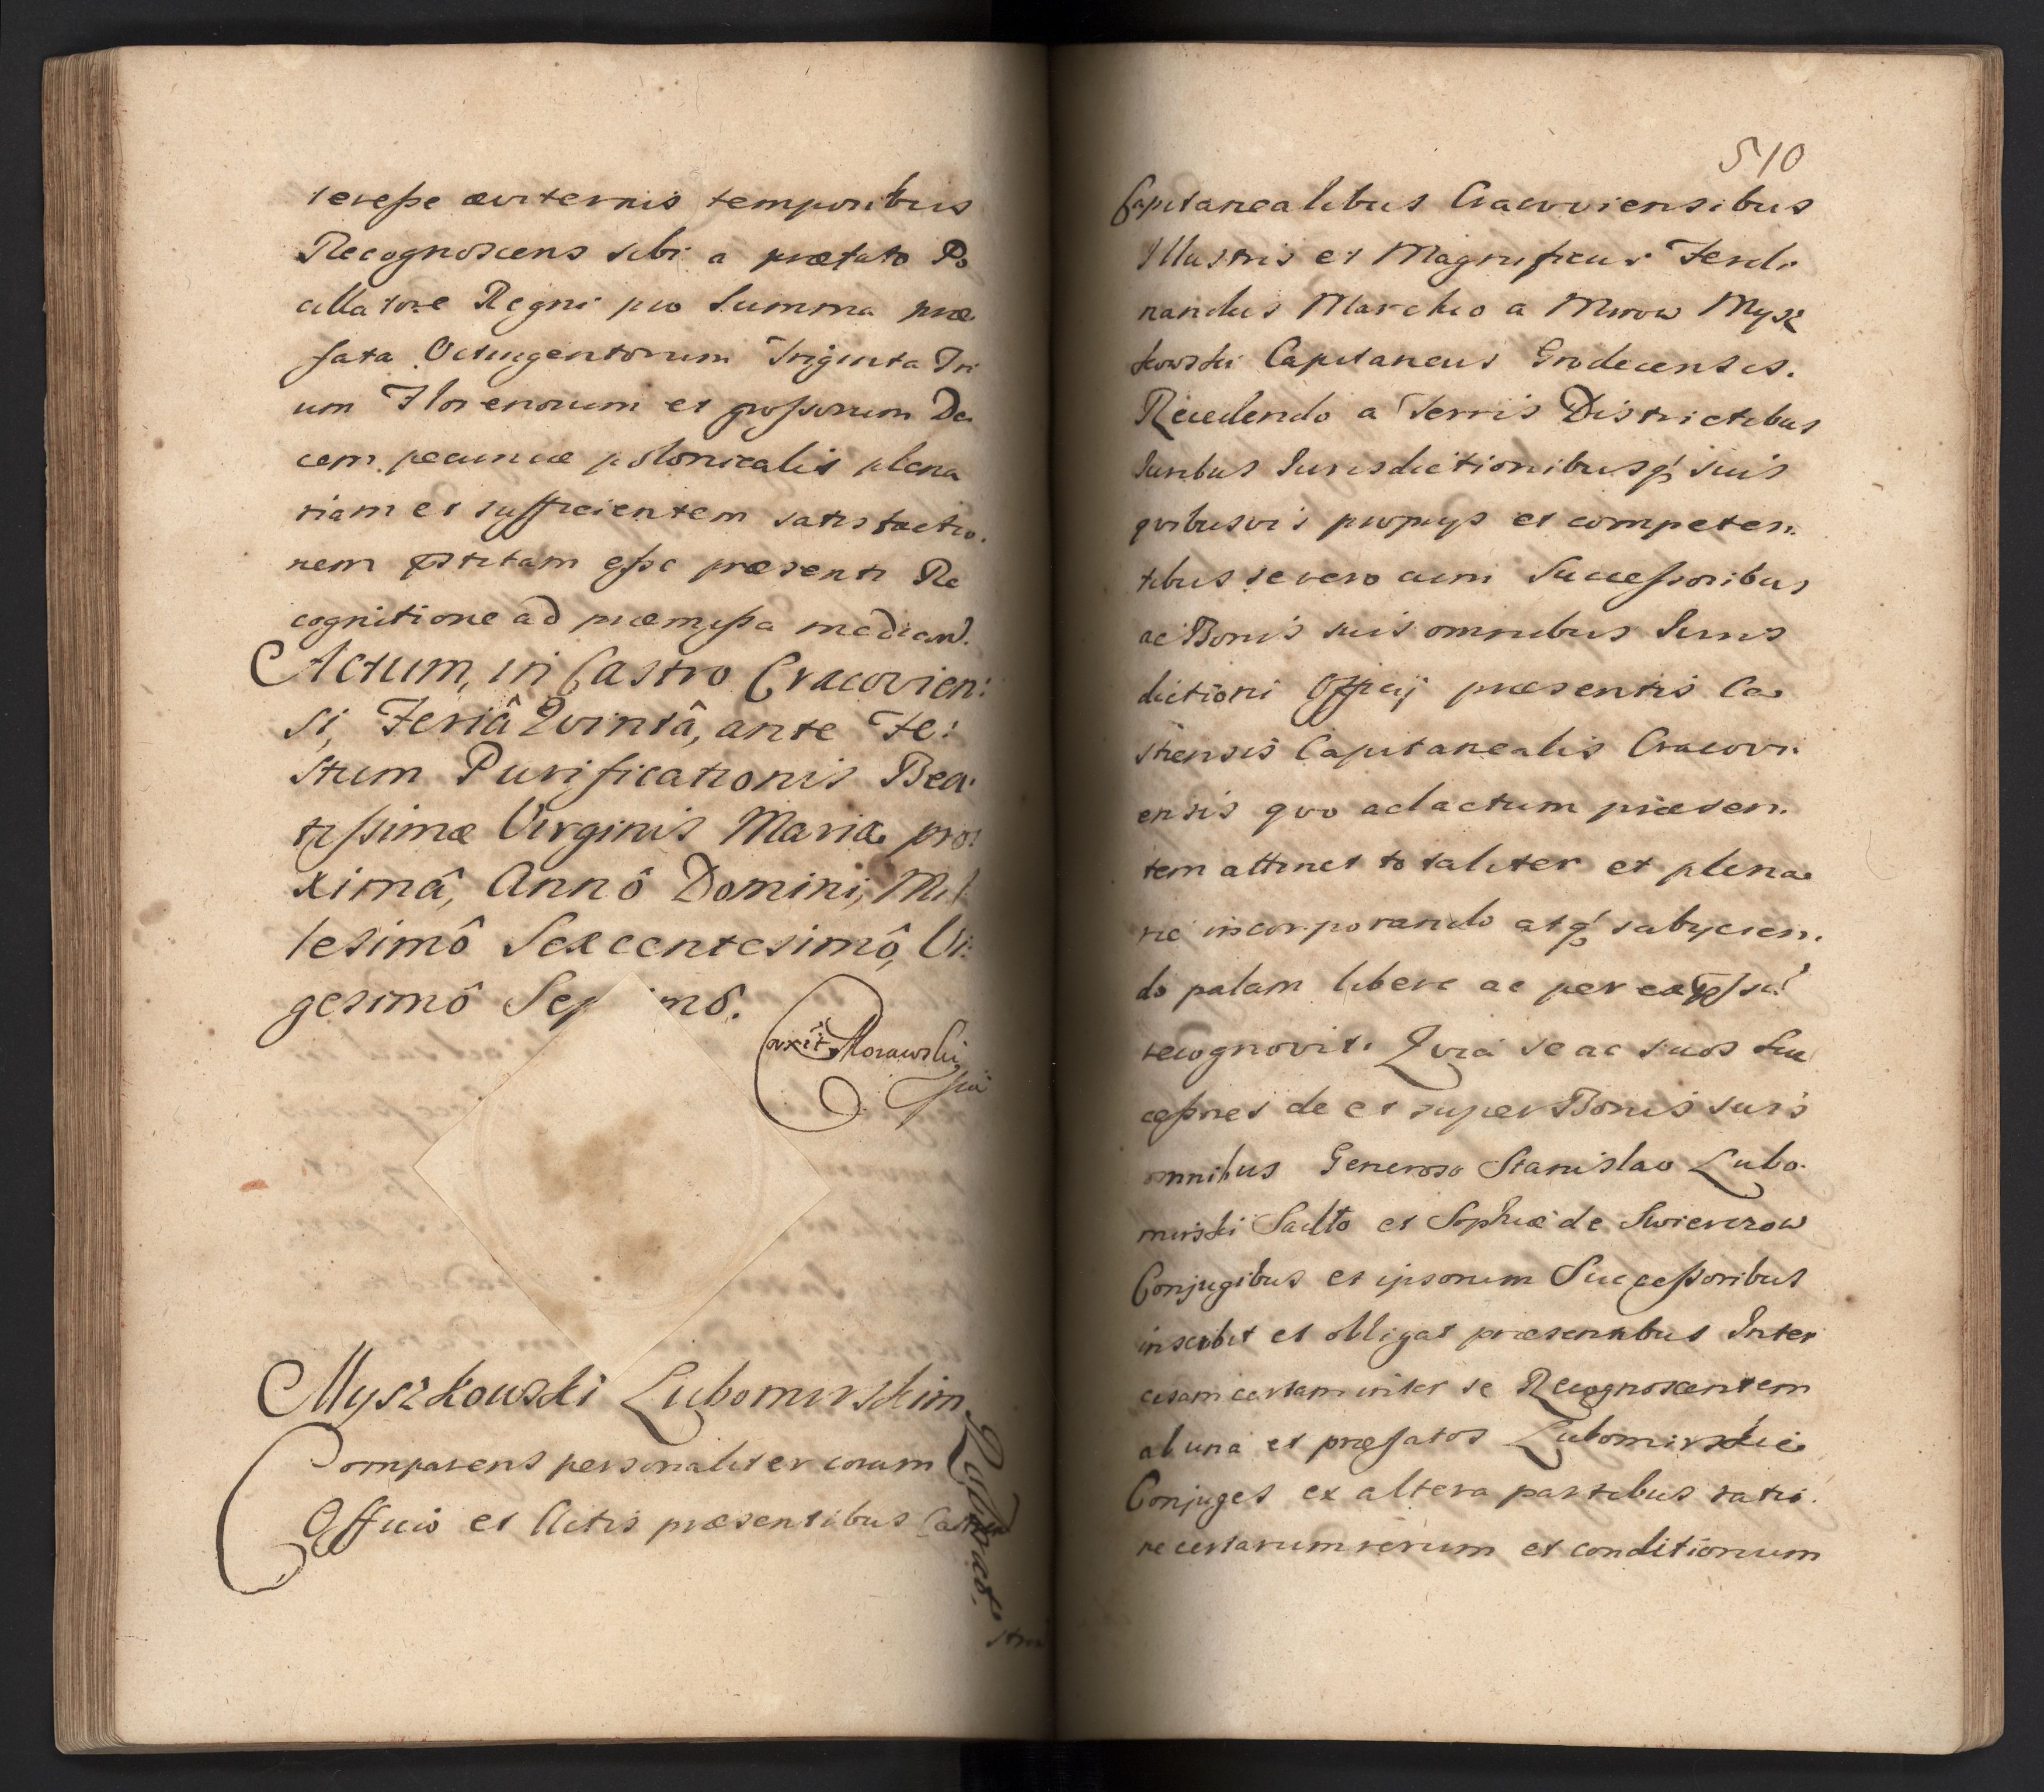 teresse æviternis temporibus
Recognoscens sibi a præfato Po
cillatore Regni pro Summa præ
fata Octingentorum Triginta Tri
um Florenorum et grossorum De
cem pecuniæ polonicalis plena
riam et sufficientem satisfactio.
nem præstitam esse præsenti Re
cognitione ad præmissa median.
Actum, in Castro Cracovien:
si, Feriâ Qvintâ, ante Fe:
stum Purificationis Bea:
tissimæ Virginis Mariæ pro:
ximâ, Annô Domini, Mil
lesimô Sexcentesimô, Vi:
gesimô Sep imô.
Morawski
Myszkowski Lubomirskim
Comparens personaliter coram
Officio et Actis præsentibus Castren
510
Capitanealibus Cracoviensibus
Illustris et Magnificus Ferdi
nandus Marchio a Mirow Mysz
kowski Capitaneus Grodecensis.
Recedendo a Terris Districtibus
Iuribus Iurisdictionibusq₃ suis
qvibusvis propriys et competen:
tibus se vero cum Successoribus
ac Bonis suis omnibus Iuris
dictioni Officij præsentis Ca
strensis Capitanealis Cracovi:
ensis qvo ad actum præsen:
tem attinet totaliter et plena
rie incorporando atq₃ subycien:
do palam libere ac per expressu
recognovit. Qvia se ac suos Suc
cessores de et super Bonis suis
omnibus Generoso Stanislao Lubo.
mirski et Sophiæ de Swierczow
Conjugibus et ipsorum Successoribus
inscribit et obligat præsentibus Inter
cisam certam inter se Recognoscentem
ab una et præfatos Lubomirskie
Conjuges ex altera partibus ratio.
ne certarum rerum et conditionum